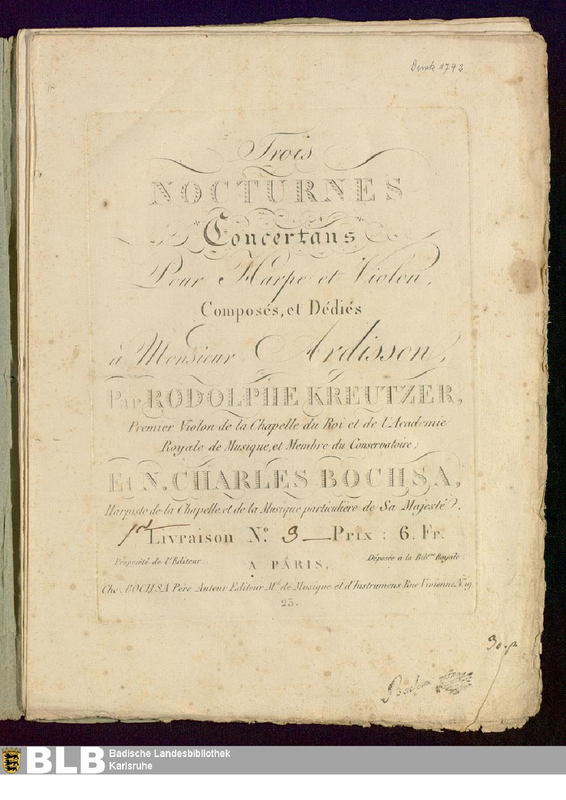 Druck 1743
Trois
NOCTURNES
Concertans
Pour Harpe et Violon,
Composés, et Dédiés
à Monsieur Ardisson,
Par RODOLPHE KREUTZER,
Premier Violon de la Chapelle du Roi et de l'Academie
Royale de Musique, et Membre du Conservatoire;
Et N. CHARLES BOCHSA,
Harpiste de la Chapelle et de la Musique particuliere de Sa Majesté.
1re Livraison No. 3 Prix : 6. Fr.
Propriété de l'Editeur.
Déposée à la Bibl.me Royale.
A PARIS,
Chez BOCHSA Père Auteur Editeur Md. de Musique et d'Instrumens Rue Vivienne No. 19
23.
BLB Badische Landesbibliothek
Karlsruhe